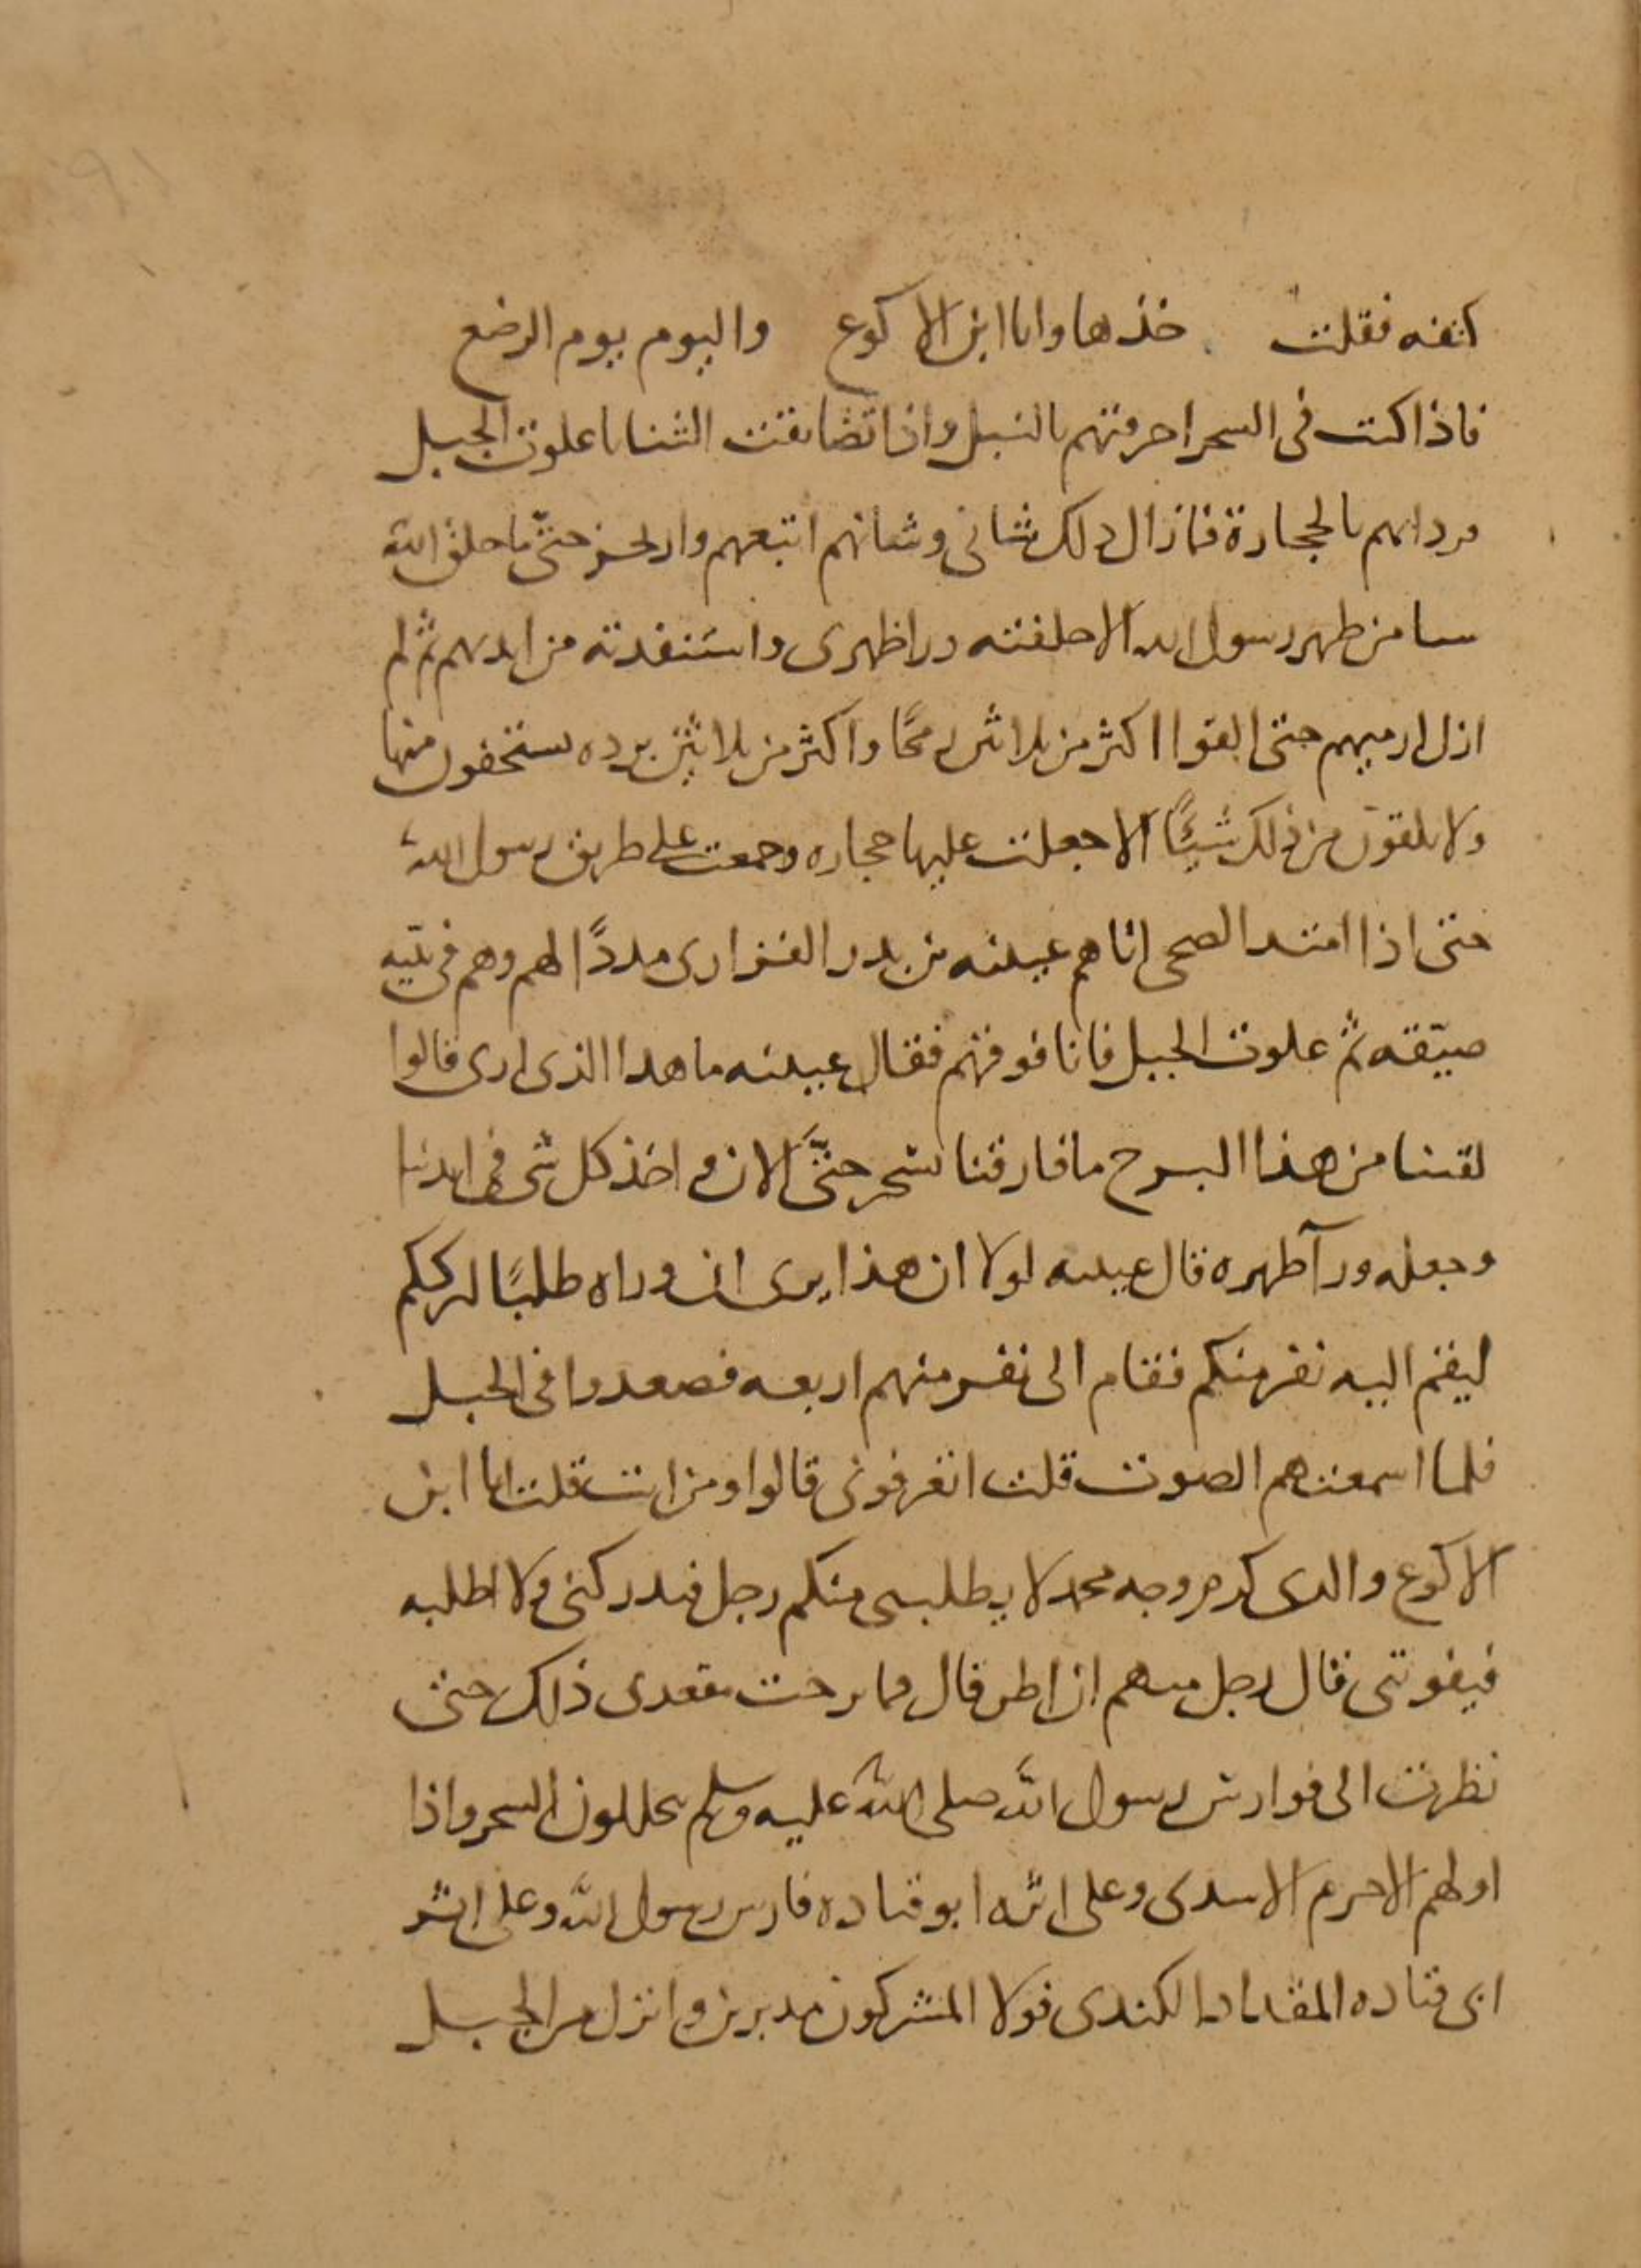 كتفه فقلت خذها وانا ابن الاكوع واليوم يوم الرضع
فاذا كنت فى السحر احرقتهم بالنبل واذا تضايقت الثنايا علوت الجبل
فرداتهم بالحجارة فما زال ذلك شانى وشانهم اتبعهم وارتجز حتى ما خلق الله
سا من ظهر رسول الله الا خلفته ورا ظهرى واستنقذته من ايديهم ثم لم
ازل ارميهم حتى القوا اكثر من ثلاثين رمحًا واكثر من ثلاثين برده يستخفون منها
ولا يلقون من ذلك شيئًا الا جعلت عليها حجاره وجمعت على طريق رسول الله
حتى اذا امتد الضحى اتاهم عيينه بن بدر الفزارى مددًا لهم وهم فى ثنيه
ضيّقه ثم علوت الجبل فانا فوقهم فقال عيينه ما هذا الذى ارى قالوا
لقينا من هذا البرح ما فارقنا بسحر حتّى الان و اخذ كل شى فى ايدينا
وجعله ورآ ظهره قال عيينه لولا ان هذا يرى ان وراه طلبًا لترككم
ليقم اليه نفر منكم فقام الى نفر منهم اربعه فصعدوا فى الجبل
فلما اسمعتهم الصوت قلت اتعرفونى قالوا ومن انت قلت انا ابن
الاكوع والذى كرم وجه محمد لا يطلبنى منكم رجل فيدركنى ولا اطلبه
فيفوتنى قال رجل منهم ان اظن قال فما برحت مقعدى ذلك حتى
نظرت الى فوارس رسول الله صلى الله عليه وسلم يتخللون الشجر واذا
اولهم الاخرم الاسدى وعلى اثره ابو قتاده فارس رسول الله وعلى اثر
ابى قتاده المقداد الكندى فولا المشركون مدبرين و انزل من الجبل